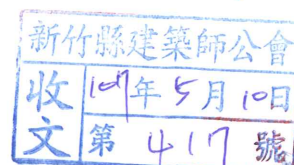 新竹縣建築師公會
收文
107年5月10日
第417號